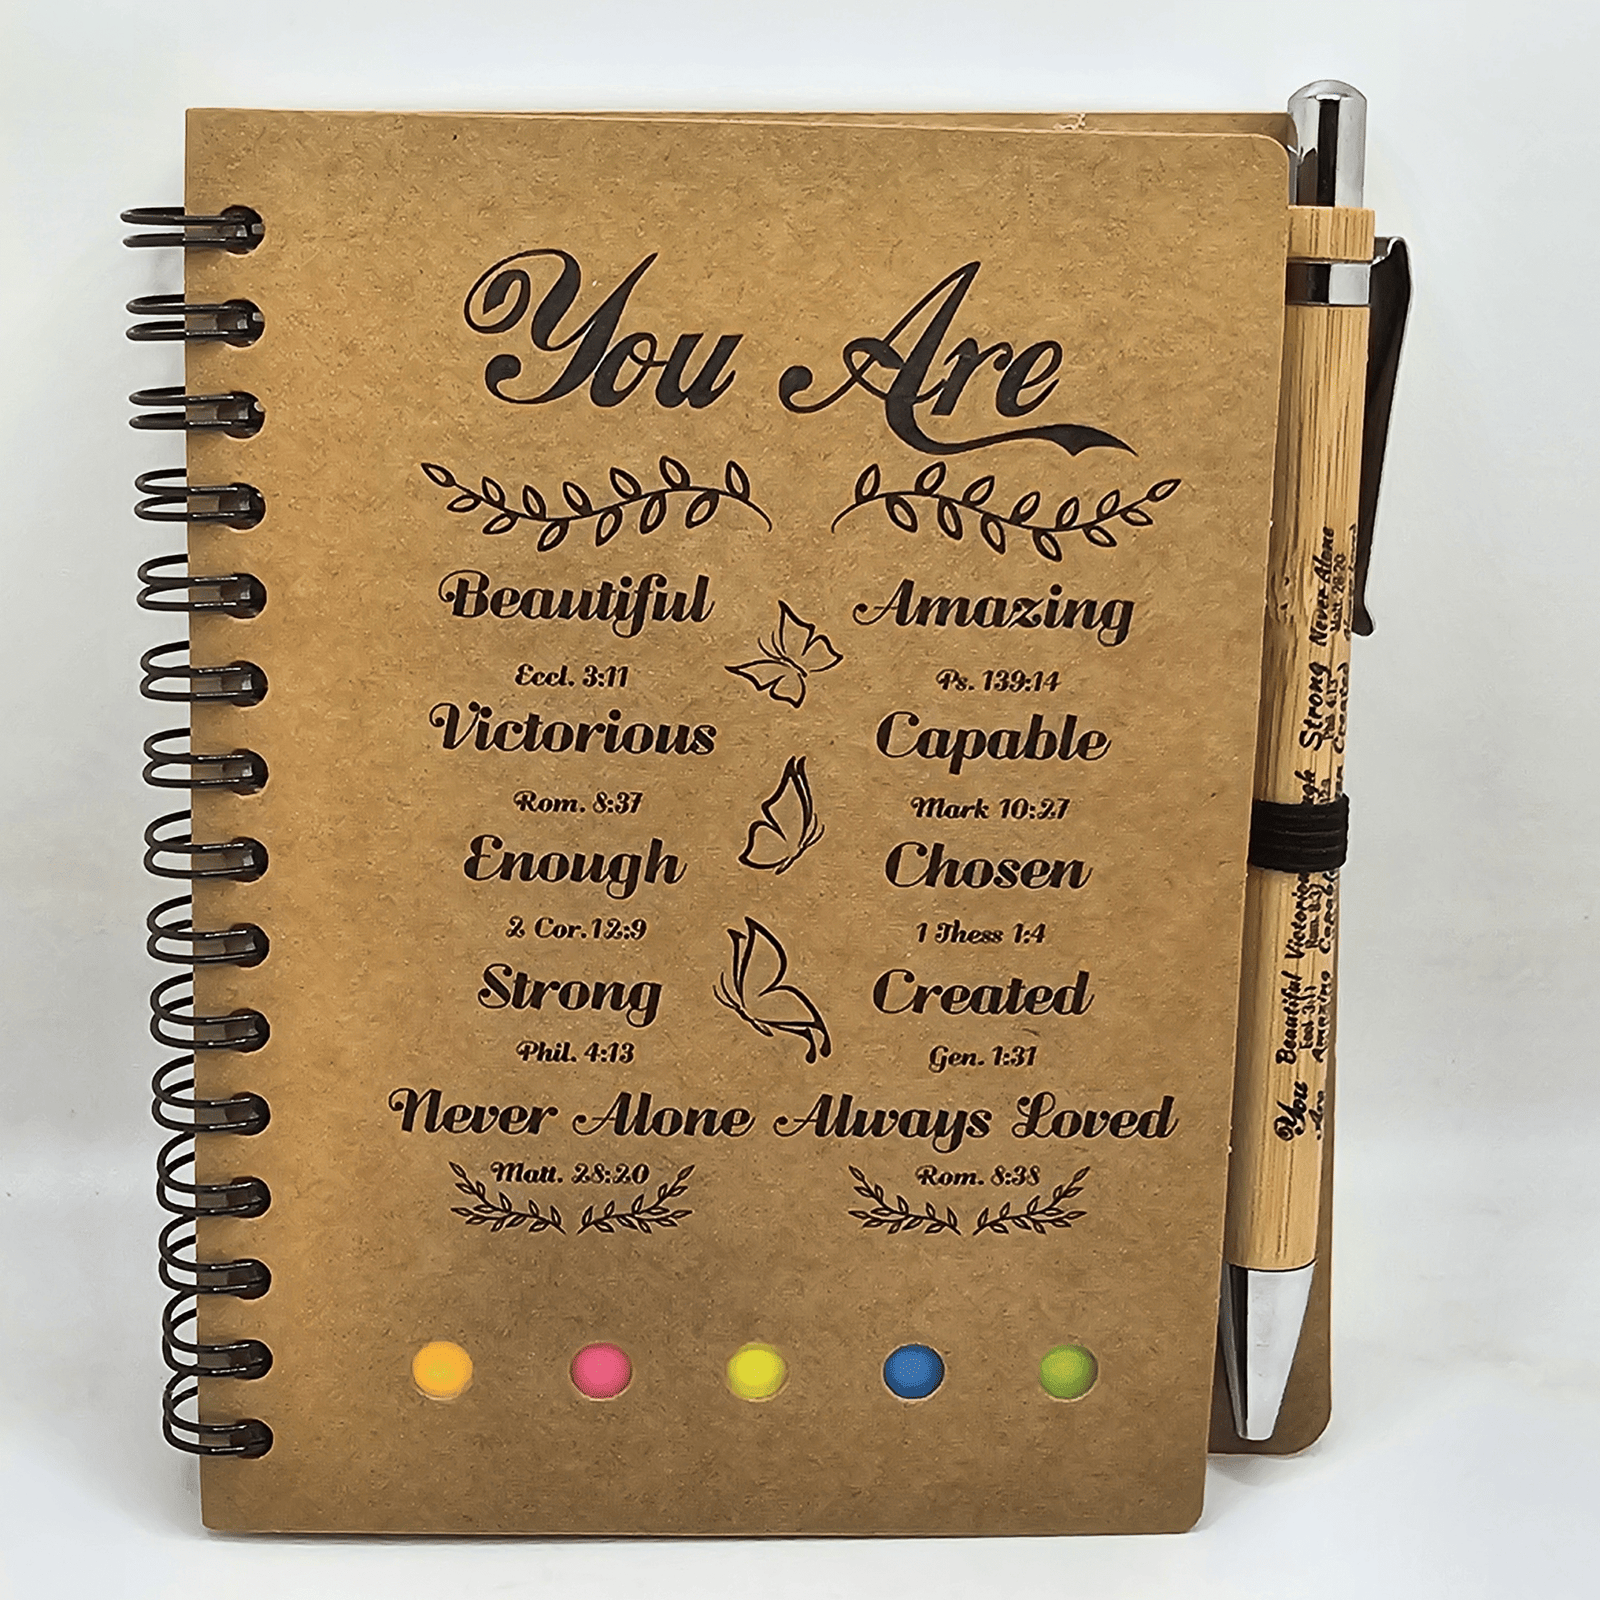 You Are
Beautiful Amazing
Eccl. 3:11 Ps. 139:14
Victorious Capable
Rom. 8:37 Mark 10:27
Enough Chosen
2 Cor.12:9 1 Thess 1:4
Strong Created
Phil. 4:13 Gen. 1:31
Never Alone Always Loved
Matt. 28:20 Rom. 8:38
You Beautiful Victorious Strong Never Alone
Eccl 3:11 Phil 4:13 Matt. 28:20
Are Amazing